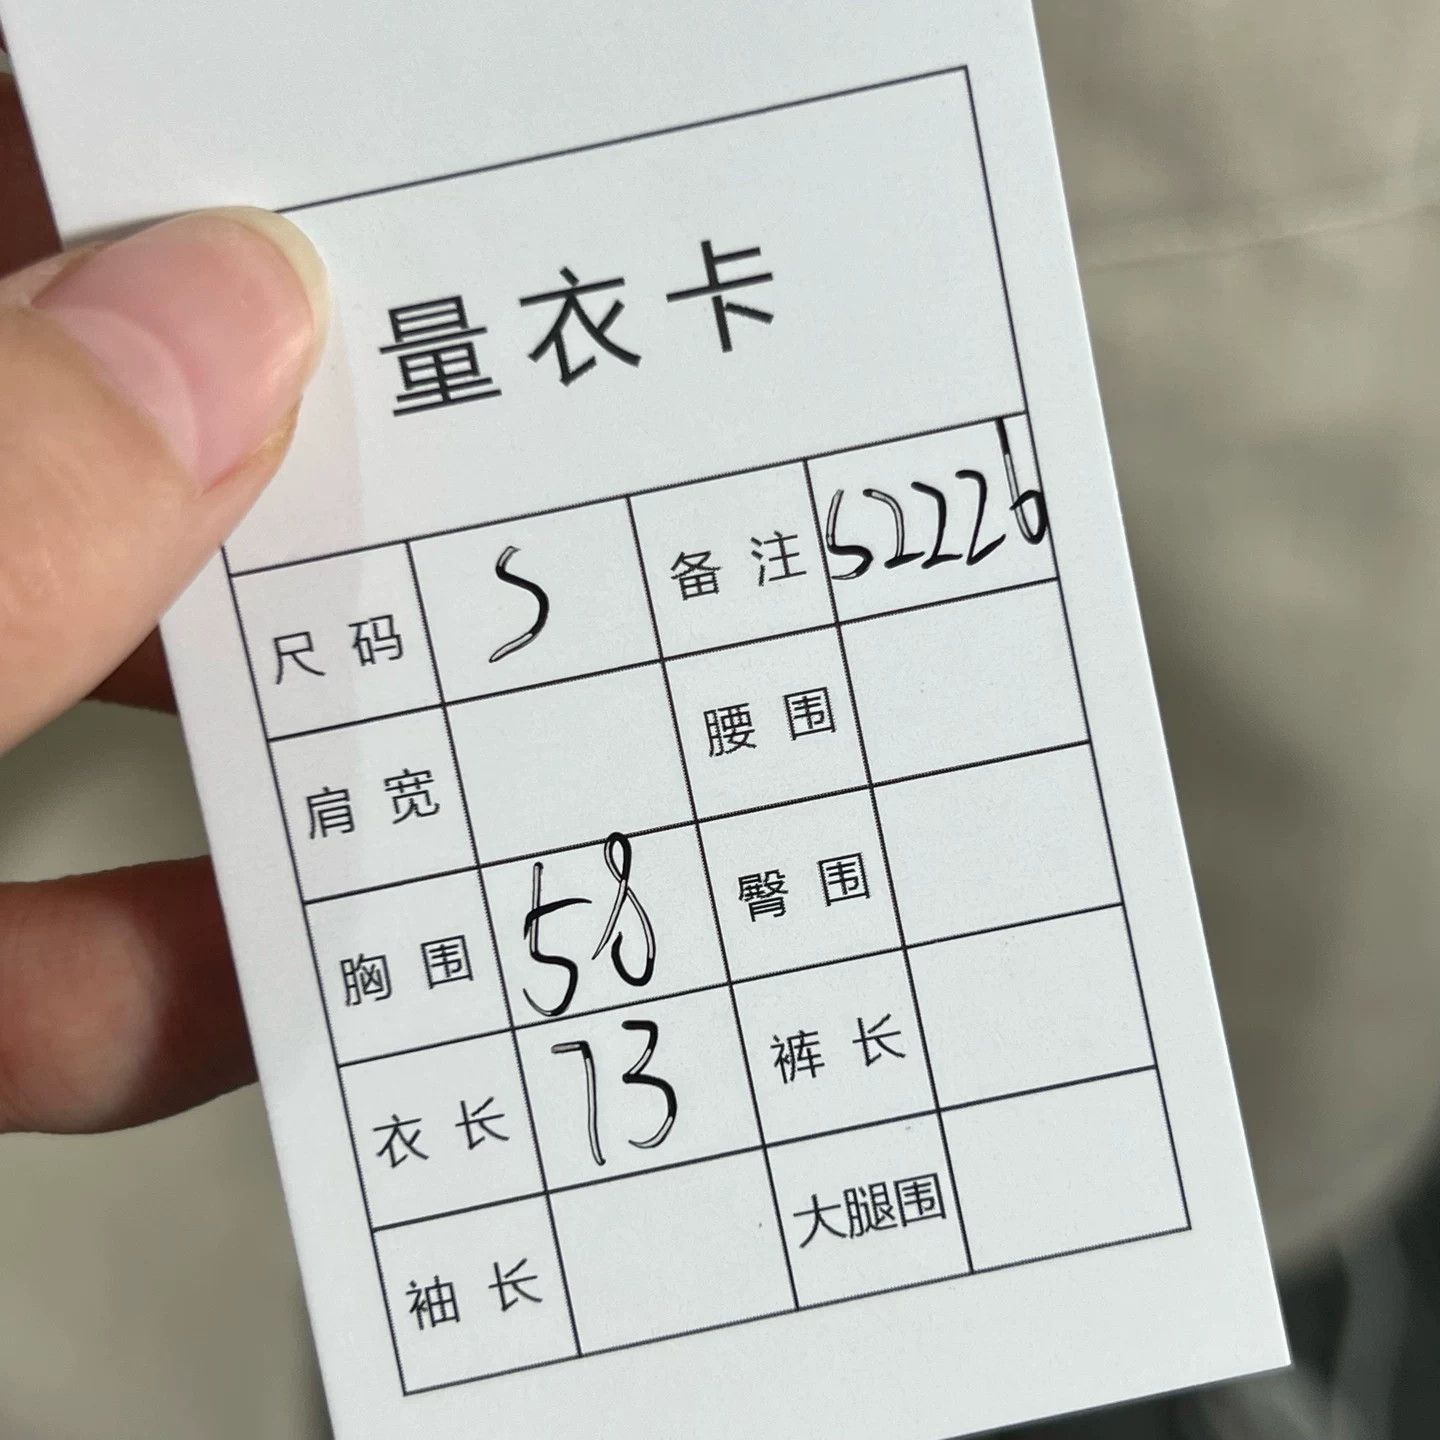 量衣卡
尺码 S 备注 S2226
肩宽 腰围
胸围 58 臀围
衣长 73 裤长
袖长 大腿围